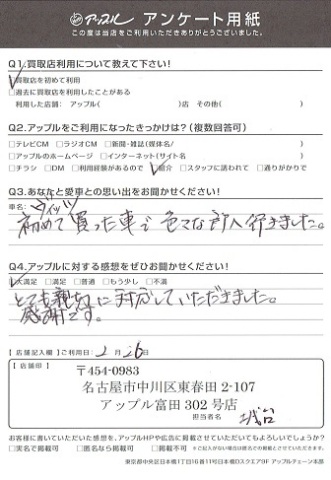 アップル アンケート用紙
この度は当店をご利用いただきありがとうございました。
Q1.買取店利用について教えて下さい!
☑買取店を初めて利用
□過去に買取店を利用したことがある
利用した店舗: アップル( )店 その他( )
Q2.アップルをご利用になったきっかけは?(複数回答可)
□テレビCM □ラジオCM □新聞・雑誌(媒体名/ )
□アップルのホームページ □インターネット(サイト名 )
□チラシ □DM □利用経験があるので ☑紹介 □スタッフに誘われて □通りがかりで
Q3.あなたと愛車との思い出をお聞かせください!
車名: ヴィッツ
初めて買った車で色々な所へ行きました。
Q4.アップルに対する感想をぜひお聞かせください!
☑大満足 □満足 □普通 □もう少し □不満
とても親切に対応していただきました。
感謝です。
【店舗記入欄】【ご利用日: 2月26日
【店舗印】
〒454-0983
名古屋市中川区東春田 2-107
アップル富田 302 号店
担当者名
お客様に書いていただいた感想を、アップルHPや広告に掲載させていただいてもよろしいでしょうか?
□実名で掲載可 □匿名なら掲載可 □掲載不可
東京都中央区日本橋1丁目16番11号日本橋Dスクエア9F アップルチェーン本部